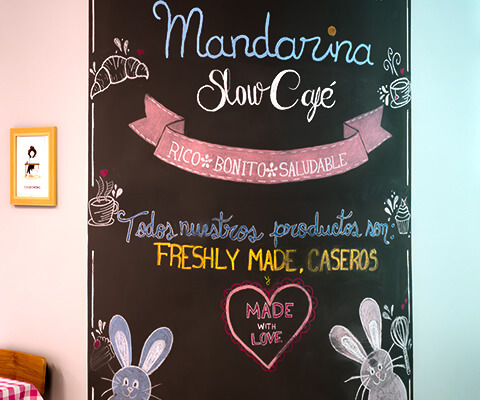 Mandarina
Slow Café
RICO*BONITO*SALUDABLE
Todos nuestros productos son:
FRESHLY MADE, CASEROS
y
MADE
WITH
LOVE